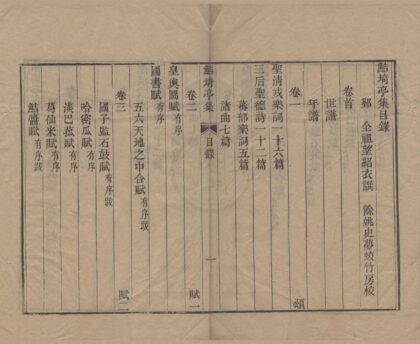 鮚埼亭集目錄
鄞 全祖望紹衣譔 餘姚史夢蛟竹房校
卷首
世譜
年譜
卷一 頌
聖清戎樂詞一十六篇
三后聖德詩一十二篇
蕃部樂詞五篇
諸曲七篇
卷二 賦一
皇輿圖賦有序
鮚埼亭集 目錄 一
國書賦有序
五六天地之中合賦有序跋
卷三 賦二
國子監石鼓賦有序跋
哈密瓜賦有序
淡巴菰賦有序
葛仙米賦有序
鮚醬賦有序跋